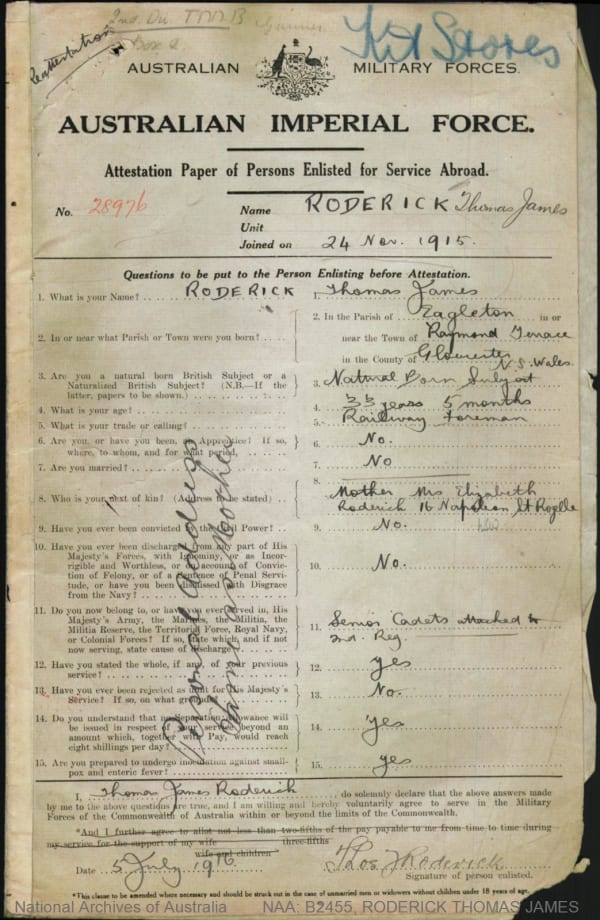 2nd. Div. TMB Gunner
Kit Stores
Reattestation
AUSTRALIAN MILITARY FORCES.
AUSTRALIAN IMPERIAL FORCE.
Attestation Paper of Persons Enlisted for Service Abroad.
No. 28976
Name RODERICK Thomas James
Unit
Joined on 24 Nov. 1915.
Questions to be put to the Person Enlisting before Attestation.
1. What is your Name? RODERICK 1. Thomas James
2. In or near what Parish or Town were you born? 2. In the Parish of Eagleton in or
near the Town of Raymond Terrace
in the County of Gloucester N.S. Wales
3. Are you a natural born British Subject or a
Naturalized British Subject? (N.B.—If the
latter, papers to be shown.) 3. Natural Born Subject
4. What is your age? 4. 33 years 5 months
5. What is your trade or calling? 5. Railway Foreman
6. Are you, or have you been, an Apprentice? If so,
where, to whom, and for what period, 6. No.
7. Are you married? 7. No
8. Who is your next of kin? (Address to be stated) 8. Mother Mrs Elizabeth
Roderick 16 Napolean St Rozelle
NSW
9. Have you ever been convicted by the Civil Power? 9. No.
10. Have you ever been discharged from any part of His
Majesty's Forces, with Ignominy, or as Incor-
rigible and Worthless, or on account of Convic-
tion of Felony, or of a Sentence of Penal Servi-
tude, or have you been dismissed with Disgrace
from the Navy? 10. No.
11. Do you now belong to, or have you ever served in, His
Majesty's Army, the Marines, the Militia, the
Militia Reserve, the Territorial Force, Royal Navy,
or Colonial Forces? If so, state which, and if not
now serving, state cause of discharge 11. Senior Cadets attached to
2nd. Reg
12. Have you stated the whole, if any, of your previous
service? 12. yes
13. Have you ever been rejected as unfit for His Majesty's
Service? If so, on what grounds? 13. No.
14. Do you understand that no Separation Allowance will
be issued in respect of your service beyond an
amount which, together with Pay, would reach
eight shillings per day? 14. Yes
15. Are you prepared to undergo inoculation against small-
pox and enteric fever? 15. yes
I, Thomas James Roderick do solemnly declare that the above answers made
by me to the above questions are true, and I am willing and hereby voluntarily agree to serve in the Military
Forces of the Commonwealth of Australia within or beyond the limits of the Commonwealth.
*And I further agree to allot not less than two-fifths of the pay payable to me from time to time during
three-fifths
my service for the support of my wife
wife and children
Date 5 July 1916 Thos J Roderick
Signature of person enlisted.
*This clause to be amended where necessary and should be struck out in the case of unmarried men or widowers without children under 18 years of age.
National Archives of Australia NAA: B2455, RODERICK THOMAS JAMES